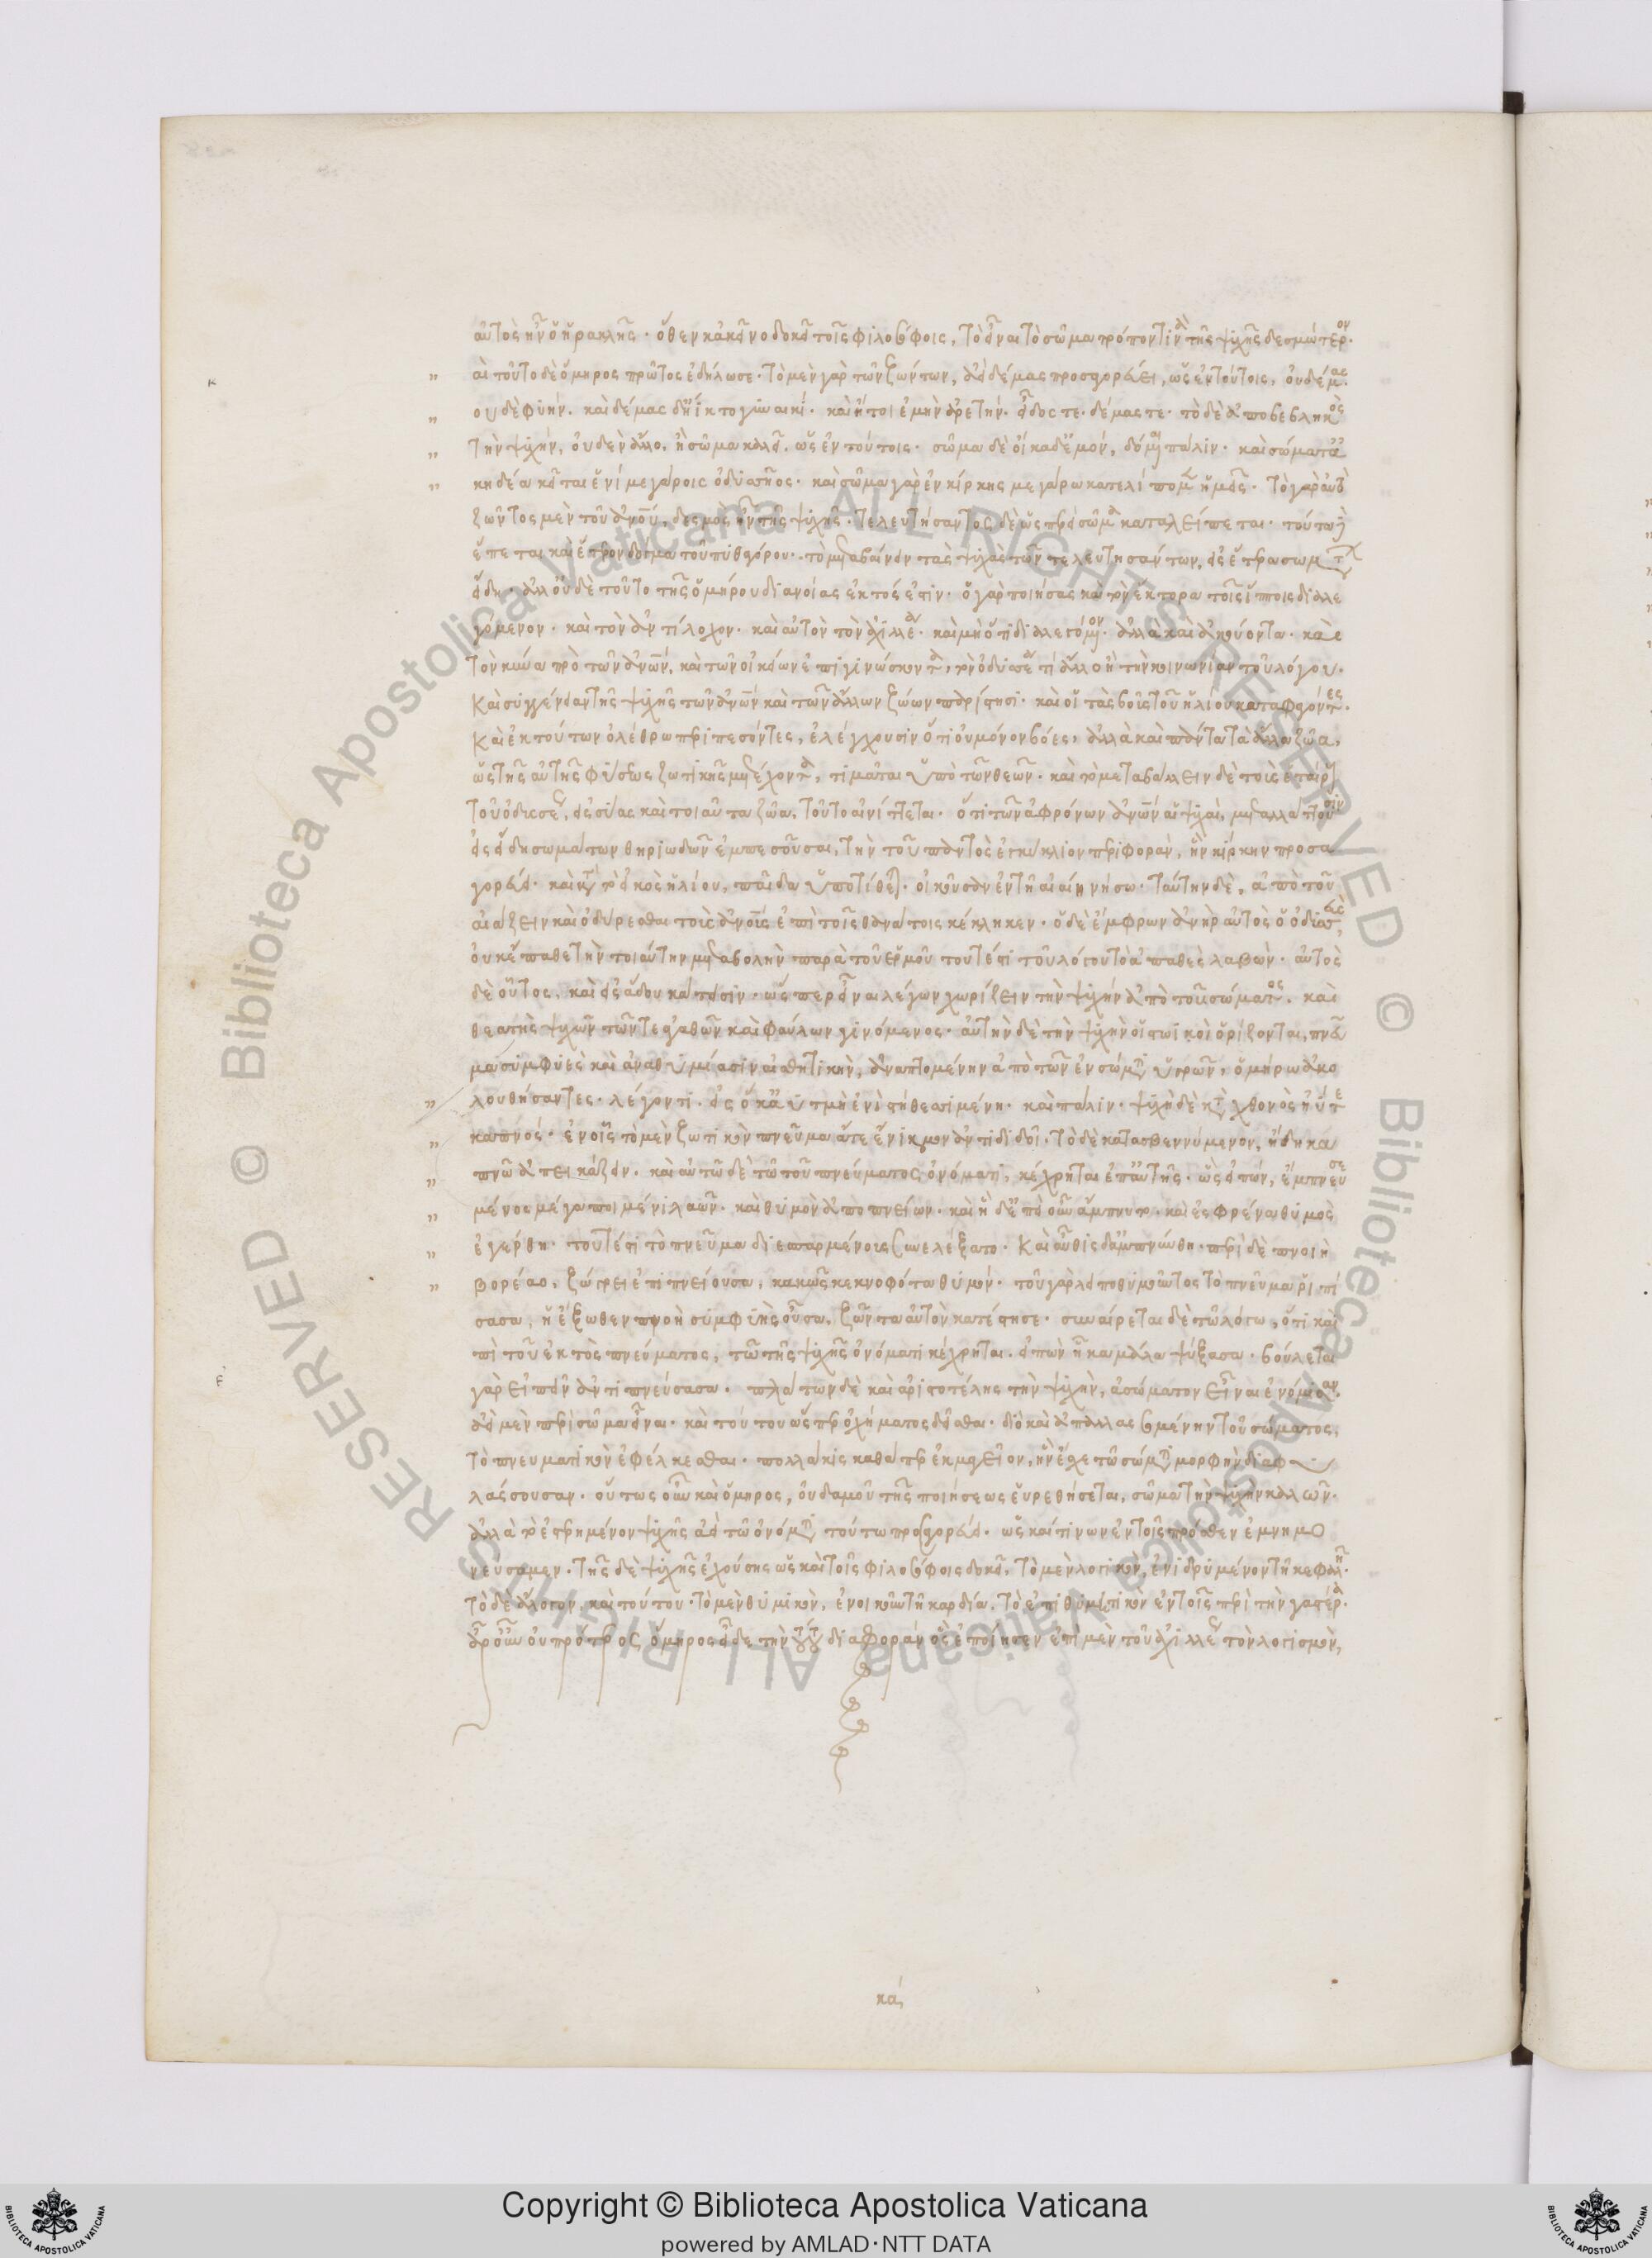 αὐτὸς ἦν ὁ ἡρακλῆς. ὅθεν κἀκεῖνο δοκεῖ τοῖς φιλοσόφοις, τὸ εἶναι τὸ σῶμα τρόπον τινὰ τῆς ψυχῆς δεσμώτερον.
αὶ τοῦτο δὲ ὅμηρος πρῶτος ἐδήλωσε. τὸ μὲν γὰρ τῶν ζώντων, ἀεὶ δέμας προσαγορεύει, ὡς ἐν τούτοις, οὐ δέμας
ουδὲ φυήν. καὶ δέμας δ' ἤϊκτο γυναικί. καὶ ἤτοι ἐμὴν ἀρετήν. εἶδός τε. δέμας τε. τὸ δὲ ἀποβεβληκὸς
τὴν ψυχήν, οὐδὲν ἄλλο, ἢ σῶμα καλεῖ. ὡς ἐν τούτοις. σῶμα δὲ οἴκαδ' ἐμόν, δόμεναι πάλιν. καὶ σώματα
κηδέα κεῖται ἐνὶ μεγάροις ὀδυσσῆος. καὶ σῶμα γὰρ ἐν κίρκης μεγάρω κατελίπομεν ἡμεῖς. τὸ γὰρ αὐτὸ
ζῶντος μὲν τοῦ ἀνου, δεσμὸς ἦν τῆς ψυχῆς. τελευτήσαντος δὲ ὥσπερ σῆμα καταλείπεται. τούτω
ἕπεται καὶ ἕτερον δόγμα τοῦ πυθαγόρου. τὸ μεταβαίνειν τὰς ψυχὰς τῶν τελευτησάντων, εἰς ἕτερα σωμάτων
εἴδη. ἀλλ' οὐδὲ τοῦτο τῆς ὁμήρου διανοίας ἐκτός ἐστιν. ὁ γὰρ ποιήσας καὶ τὸν ἕκτορα τοῖς ἵπποις διαλε
γόμενον. καὶ τὸν ἀντίλοχον. καὶ αὐτὸν τὸν ἀχιλλέα. καὶ μὴ ὅτι διαλεγόμενον. ἀλλὰ καὶ ἀκούοντα. καὶ
τὸν κύνα πρὸ τῶν ἀνων, καὶ τῶν οἰκείων ἐπιγινώσκοντα, τὸν ὀδυσσέα τί ἄλλο ἢ τὴν κοινωνίαν τοῦ λόγου.
καὶ συγγένειαν τῆς ψυχῆς τῶν ἀνων καὶ τῶν ἄλλων ζώων παρίστησι. καὶ οἱ τὰς βοῦς τοῦ ἡλίου καταφαγόντες.
καὶ ἐκ τούτων ὀλέθρω περιπεσόντες, ἐλέγχουσιν ὅτι οὐ μόνον βόες, ἀλλὰ καὶ πάντα τὰ ἄλλα ζῶα,
ὡς τῆς αὐτῆς φύσεως ζωτικῆς μετέχοντα, τιμᾶται ὑπὸ τῶν θεῶν. καὶ τὸ μεταβάλλειν δὲ τοὺς ἑταίρους
τοῦ ὀδυσσέως, εἰς σύας καὶ τοιαῦτα ζῶα, τοῦτο αἰνίττεται. ὅτι τῶν ἀφρόνων ἀνων αἱ ψυχαὶ, μεταλλάττουσιν
εἰς εἴδη σωμάτων θηριωδῶν ἐμπεσοῦσαι, τὴν τοῦ παντὸς ἐγκύκλιον περιφοράν, ἣν κίρκην προσα
γορεύει. καὶ κατὰ τὸ εἰκὸς ἡλίου, παῖδα ὑποτίθεται. οἰκοῦσαν ἐν τῆ αἰαίη νήσω. ταύτην δὲ, ἀπὸ τοῦ
αἰάζειν καὶ ὀδύρεσθαι τοὺς ἀνους ἐπὶ τοῖς θανάτοις κέκληκεν. ὁ δὲ ἔμφρων ἀνὴρ αὐτὸς ὁ ὀδυσσεὺς,
οὐκ ἔπαθε τὴν τοιαύτην μεταβολὴν παρὰ τοῦ ἑρμοῦ τουτέστι τοῦ λόγου τὸ ἀπαθὲς λαβών. αὐτὸς
δὲ οὗτος, καὶ εἰς ᾅδου κάτεισιν. ὥσπερ εἶναι λέγων χωρίζειν τὴν ψυχὴν ἀπὸ τοῦ σώματος. καὶ
θεατὴς ψυχῶν τῶν τε ἀγαθῶν καὶ φαύλων γινόμενος. αὐτὴν δὲ τὴν ψυχὴν οἱ στωικοὶ ὁρίζονται, πνεῦ
μα συμφυὲς καὶ ἀναθυμίασιν αἰσθητικὴν, ἀναπτομένην ἀπὸ τῶν ἐν σώματι ὑγρῶν, ὁμήρω ἀκο
λουθήσαντες. λέγοντι. εἰς ὅ κ' ἀϋτμὴ ἐνὶ στήθεσσι μένη. καὶ πάλιν. ψυχὴ δὲ κατὰ χθονὸς ἠΰτε
καπνός. ἐν οἷς τὸ μὲν ζωτικὸν πνεῦμα ἅτε ἔνικμον ἀντιδιδοῖ. τὸ δὲ κατασβεννύμενον, ἤδη κα
πνῶ ἀπεικάζειν. καὶ αὐτῶ δὲ τῶ τοῦ πνεύματος ὀνόματι, κέχρηται ἐπ' αὐτῆς. ὡς εἰπών, ἔμπνευσε
μένος μέγα ποιμένι λαῶν. καὶ θυμὸν ἀποπνείων. καὶ ἡ δ' ἐπεὶ οὖν ἄμπνυτο. καὶ ἐς φρένα θυμὸς
ἐγέρθη. τουτέστι τὸ πνεῦμα διεσπαρμένοις συνελέξατο. καὶ αὖθις δ' ἀμπνύνθη. περὶ δὲ πνοιὴ
βορέαο, ζώγρει ἐπιπνείουσα, κακῶς κεκαφότα θυμόν. τοῦ γὰρ λειποθυμοῦντος τὸ πνεῦμα ῥιπί
σασα, ἡ ἔξωθεν πνοὴ συμφυὴς οὖσα, ζῶντα αὐτὸν κατέστησε. συναίρεται δὲ τῶ λόγω, ὅτι καὶ
πὶ τοῦ ἐκτὸς πνεύματος, τῶ τῆς ψυχῆς ὀνόματι κέχρηται. εἰπών ἧκα μάλα ψύξασα. βούλεται
γὰρ εἰπεῖν ἀντιπνεύσασα. πλάτων δὲ καὶ ἀριστοτέλης τὴν ψυχὴν, ἀσώματον εἶναι ἐνόμισαν.
ἀεὶ μὲν περὶ σῶμα εἶναι. καὶ τούτου ὥσπερ ὀχήματος δεῖσθαι. διὸ καὶ ἀπαλλασσομένην τοῦ σώματος,
τὸ πνευματικὸν ἐφέλκεσθαι. πολλάκις καθάπερ ἐκμαγεῖον, ἣν ἔσχε τῶ σώματι μορφὴν διαφυ
λάσσουσαν. οὕτως οὖν καὶ ὅμηρος, οὐδαμοῦ τῆς ποιήσεως εὑρεθήσεται, σῶμα τὴν ψυχὴν καλῶν.
ἀλλὰ τὸ ἐστερημένον ψυχῆς ἀεὶ τῶ ὀνόματι τούτω προσαγορεύει. ὡς καί τινων ἐν τοῖς πρόσθεν ἐμνημο
νεύσαμεν. τῆς δὲ ψυχῆς ἐχούσης ὡς καὶ τοῖς φιλοσόφοις δοκεῖ, τὸ μὲν λογικὸν, ἐνιδρυμένον τῆ κεφαλῆ.
τὸ δὲ ἄλογον, καὶ τούτου. τὸ μὲν θυμικὸν, ἐνοικοῦν τῆ καρδία, τὸ ἐπιθυμητικὸν ἐν τοῖς περὶ τὴν γαστέρα.
ἆρ' οὖν οὐ πρότερος ὅμηρος εἶδε τὴν τούτων διαφοράν ὃς ἐποίησεν ἐπὶ μὲν τοῦ ἀχιλλέως τὸν λογισμὸν,
κα,
Copyright © Biblioteca Apostolica Vaticana
powered by AMLAD·NTT DATA
RESERVED © Biblioteca Apostolica Vaticana ALL RIGHTS RESERVED © Biblioteca Apostolica Vaticana ALL RIGHTS